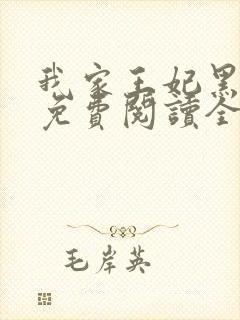 我家王妃黑
免費閱讀全
毛岸英